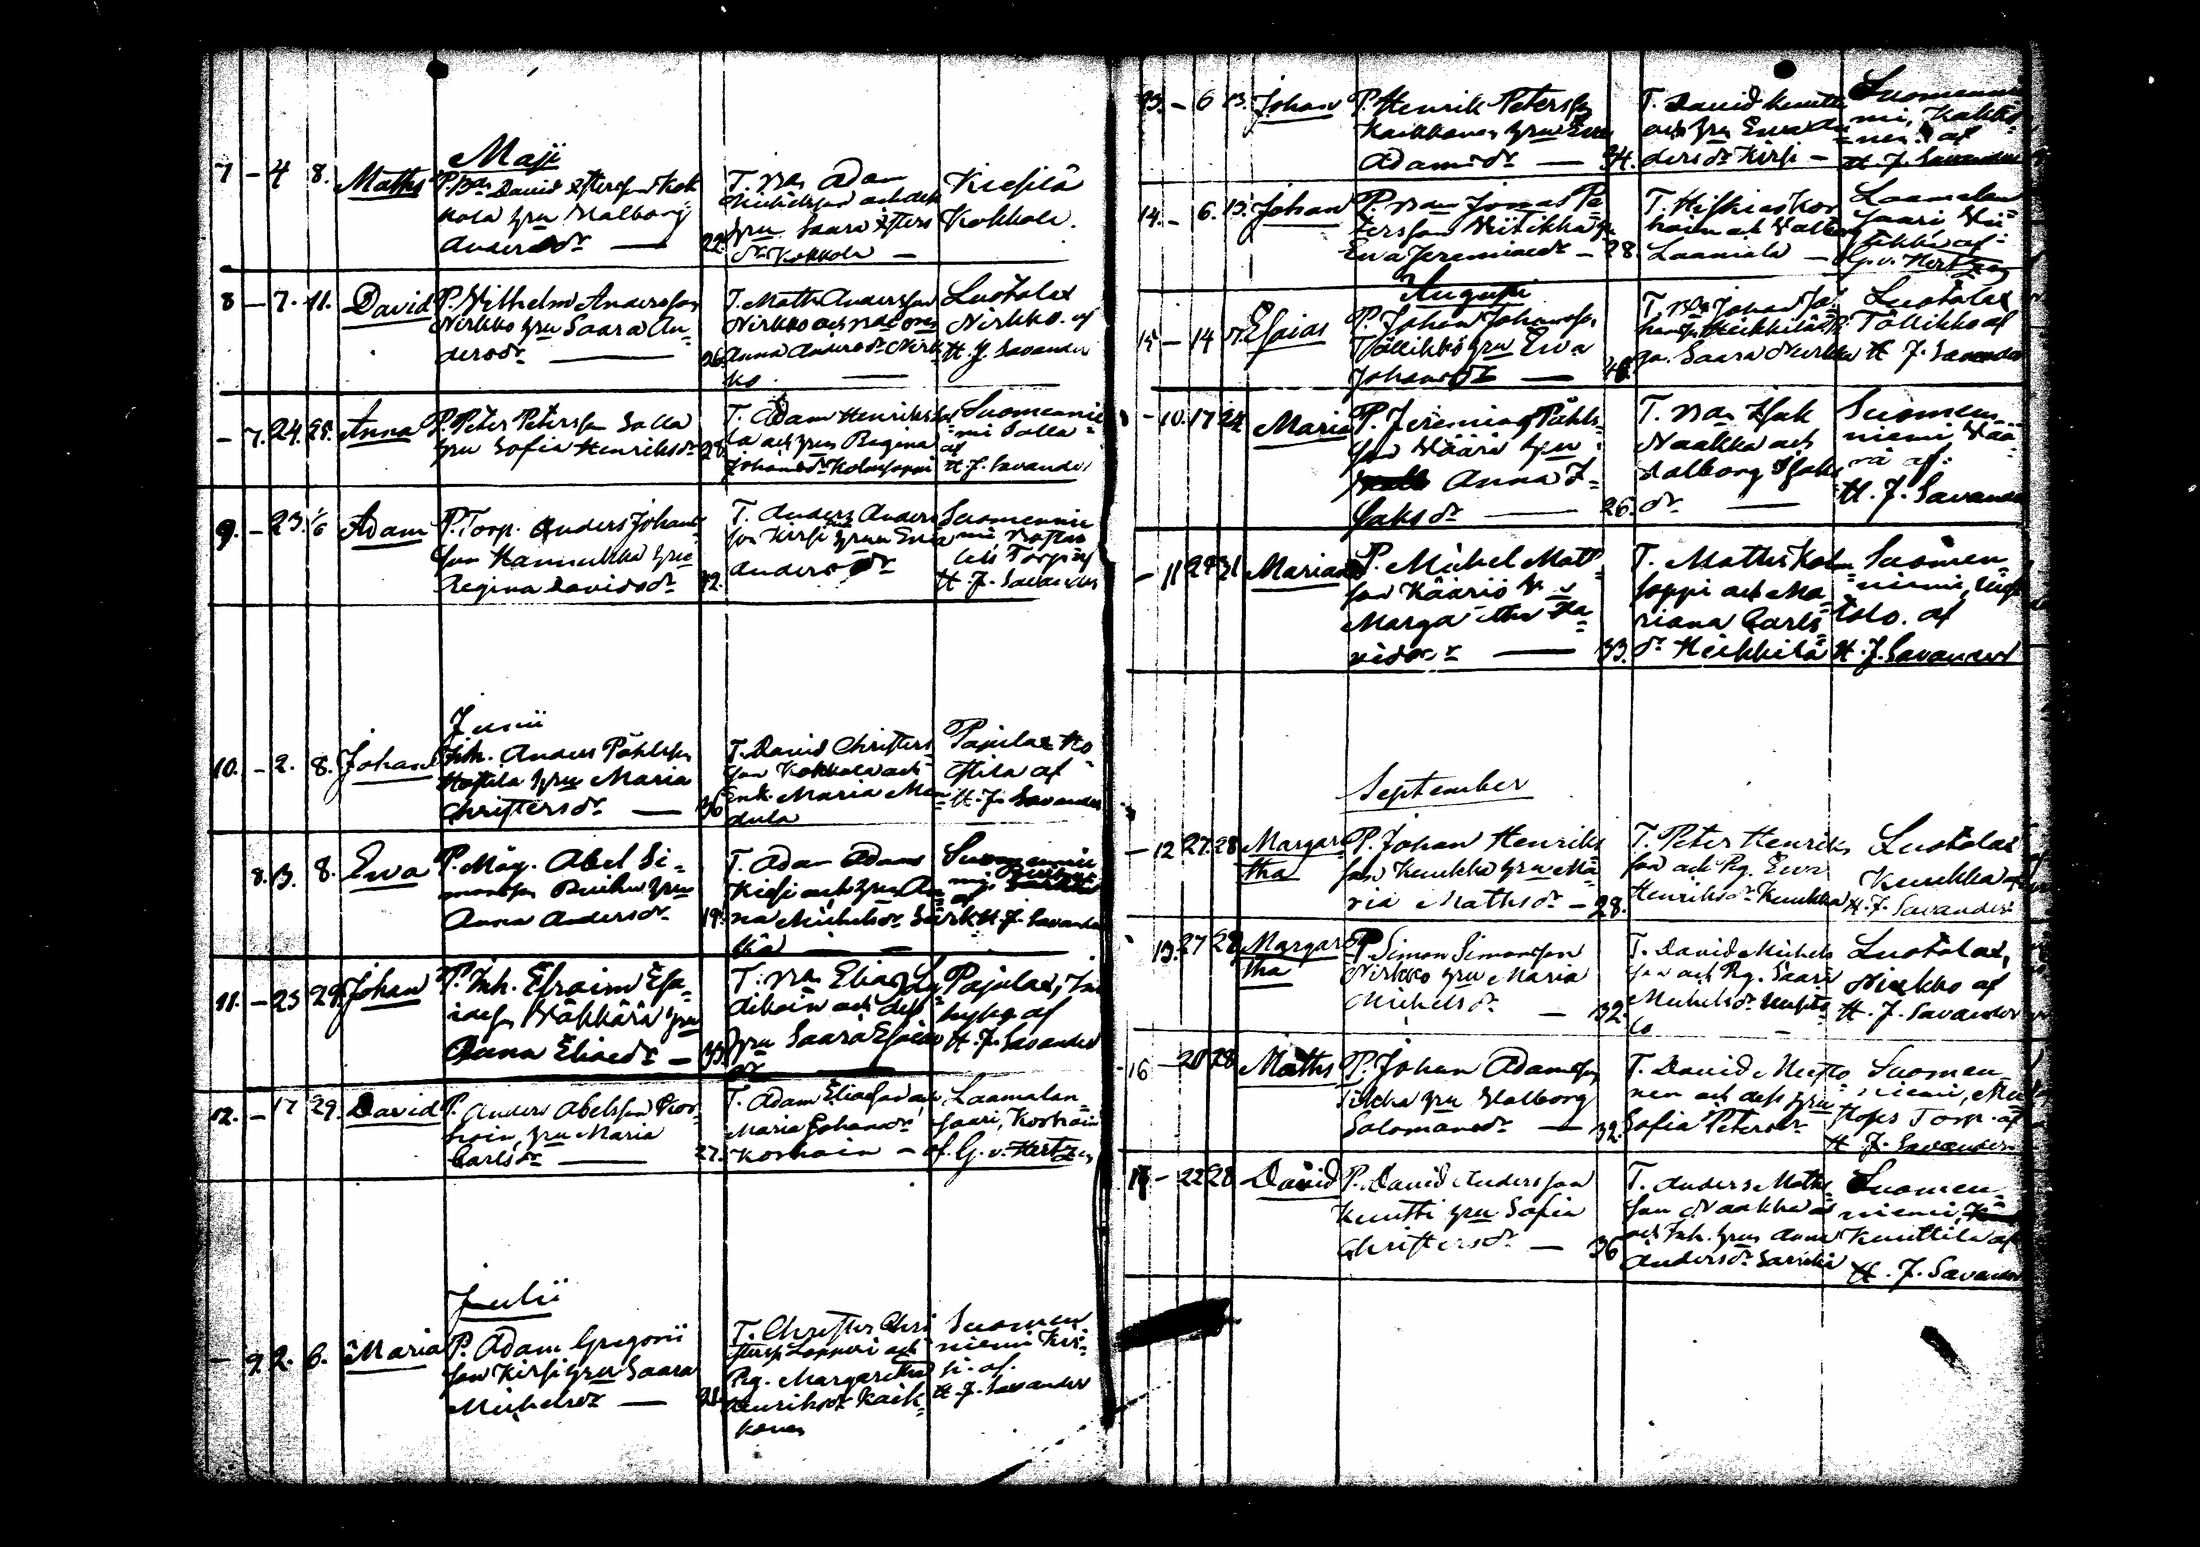 Maji
7 - 4 8. Maths P. Bn David Xstersson Kok
kola hru Walborg
Andersdr — 22.
T. Bn Adam
Michelsson och dess
hru Saara Xsters
dr Kokkola —
Kiesilä
Kokkola.
8 - 7. 11. David P. Wilhelm Andersson
Nirkko hru Saara An-
dersdr — 26.
T. Math Andersson
Nirkko och
Anna Andersdr Nirk
ko. —
Luotolax
Nirkko. af
H. J. Savander
- 7. 24. 25. Anna P. Peter Petersson Salla
hru Sofia Henriksdr 28.
T. Adam Henriksson
la och hrus Regina
Johansdr Kolmsoppi
Suomennie
mi Salla
af
H. J. Savander
9. - 23. 1/6 Adam P. Torp. Anders Johans
son Hannukka hru
Regina Davidsdr 32.
T. Anders Anders
son Kirsi hrun Ewa
Andersdr
Suomennie
mi
Torp af
H. J. Savander
Junii
10. - 2. 8. Johan Inh. Anders Påhlsson
Hostila hru Maria
Christersdr — 36
T. David Christers
son Kokkola och
Enk. Maria Men
dula
Pajulax Ho
stila af
H. J. Savander
8. 13. 8. Ewa P. Måg. Abel Si-
monsson hru
Anna Andersdr 19.
T. Adam Adams
Kirsi och hru An
na Michelsdr Särk
kä —
Suomennie
mi
af
H. J. Savander
11. - 23 29. Johan P. Inh. Efraim Esa-
iasson Väkkärä hru
Anna Eliaedr — 33.
T. Bn Elias Ly
dikain och dess
hru Saara Esaias
dr
Pajulax,
af
H. J. Savander
12. - 17 29. David P. Anders Abelsson Kor
hoin, hru Maria
Carlsdr — 27.
T. Adam Eliasson och
Maria Johansdr
Korhoin —
Laamalan
saari, Korhoin
af. G. v. Hertzen
Julii
- 9. 2. 6. Maria P. Adam Gregorii
son Kirsi hru Saara
Michelsdr — 21.
T. Christer Chri
sterss Lapperi och
Pig. Margaretha
Henriksdr Kaik-
konen
Suomen
niemi Kir-
si. af.
H. J. Savander
13. - 6 13. Johan P. Henrik Petersson
Kaikkonen hru Ewa
Adamsdr — 34.
T. David Kuutti
och hru Ewa An
dersdr Kirsi —
Suomennie
mi, Kaikko
nen. af
H. J. Savander
14. - 6. 13. Johan P. Bn Jonas Pe
tersson Wiitikka hru
Ewa Jeremiaedr — 28.
T. Hiskias Kor
hoin och Walborg
Laamala —
Laamalan
saari Wii
tikka af
G. v. Hertzen
Augusti
15 - 14 Esaias P. Johan Johansson
Töllikkö hru Ewa
Johansdr — 40.
T. Bn Johan Jo
hanss Heikkilä och
Saara Nirkko
Luotolax
Töllikkö af
H. J. Savander
- 10. 17 24 Maria P. Jeremias Påhls-
son Wääri hru
Anna I-
saksdr — 26.
T. Bn Isak
Naakka och
Walborg Isaks
dr —
Suomen-
niemi, Wää
rä af:
H. J. Savander
- 11 29 31 Mariana P. Michel Mats
son Kääriä
Margaretha Da-
vidsdr — 33.
T. Maths Kolm
soppi och Ma-
riana Carls
dr Heikkilä
Suomen-
niemi,
tolo. af
H. J. Savander
September
- 12 27. 28 Margare
tha P. Johan Henriks
son Kuukka hru Ma-
ria Mathsdr — 28.
T. Peter Henriks
son och Pig. Ewa
Henriksdr Kuukka
Luotolax
Kuukka af
H. J. Savander
13. 27 28 Margare
tha P. Simon Simonsson
Nirkko hru Maria
Michelsdr — 32.
T. David Michels
son och Pig. Saara
Michelsdr
lo —
Luotolax,
Nirkko af
H. J. Savander
16 - 20 28 Maths P. Johan Adamsson
Tikka hru Walborg
Salomonsdr — 32.
T. David Musto
nen och dess hru
Sofia Petersdr
Suomen
niemi,
Torp. af
H. J. Savander
17 - 22 28 David P. David Andersson
Kuutti hru Sofia
Christersdr — 36
T. Anders Maths
son Naakka
och Inh. hrus Anna
Andersdr Särkkä
Suomen-
niemi,
Kuuttila af
H. J. Savander